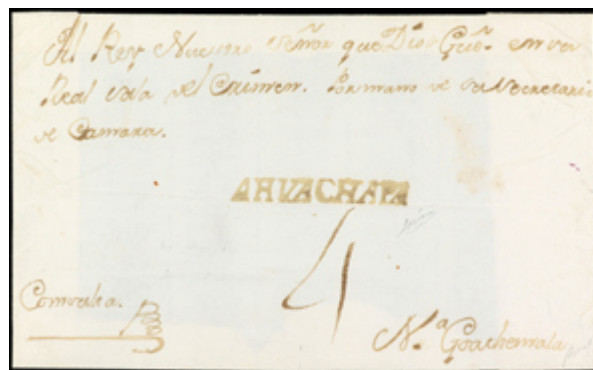 Al Rey Nuestro Señor que Dios Gũe. en su
Real sala del Crimen. Por mano de su Secretario
de Camara.
AHVACHAPA
4
Consulta.
N.a Goathemala